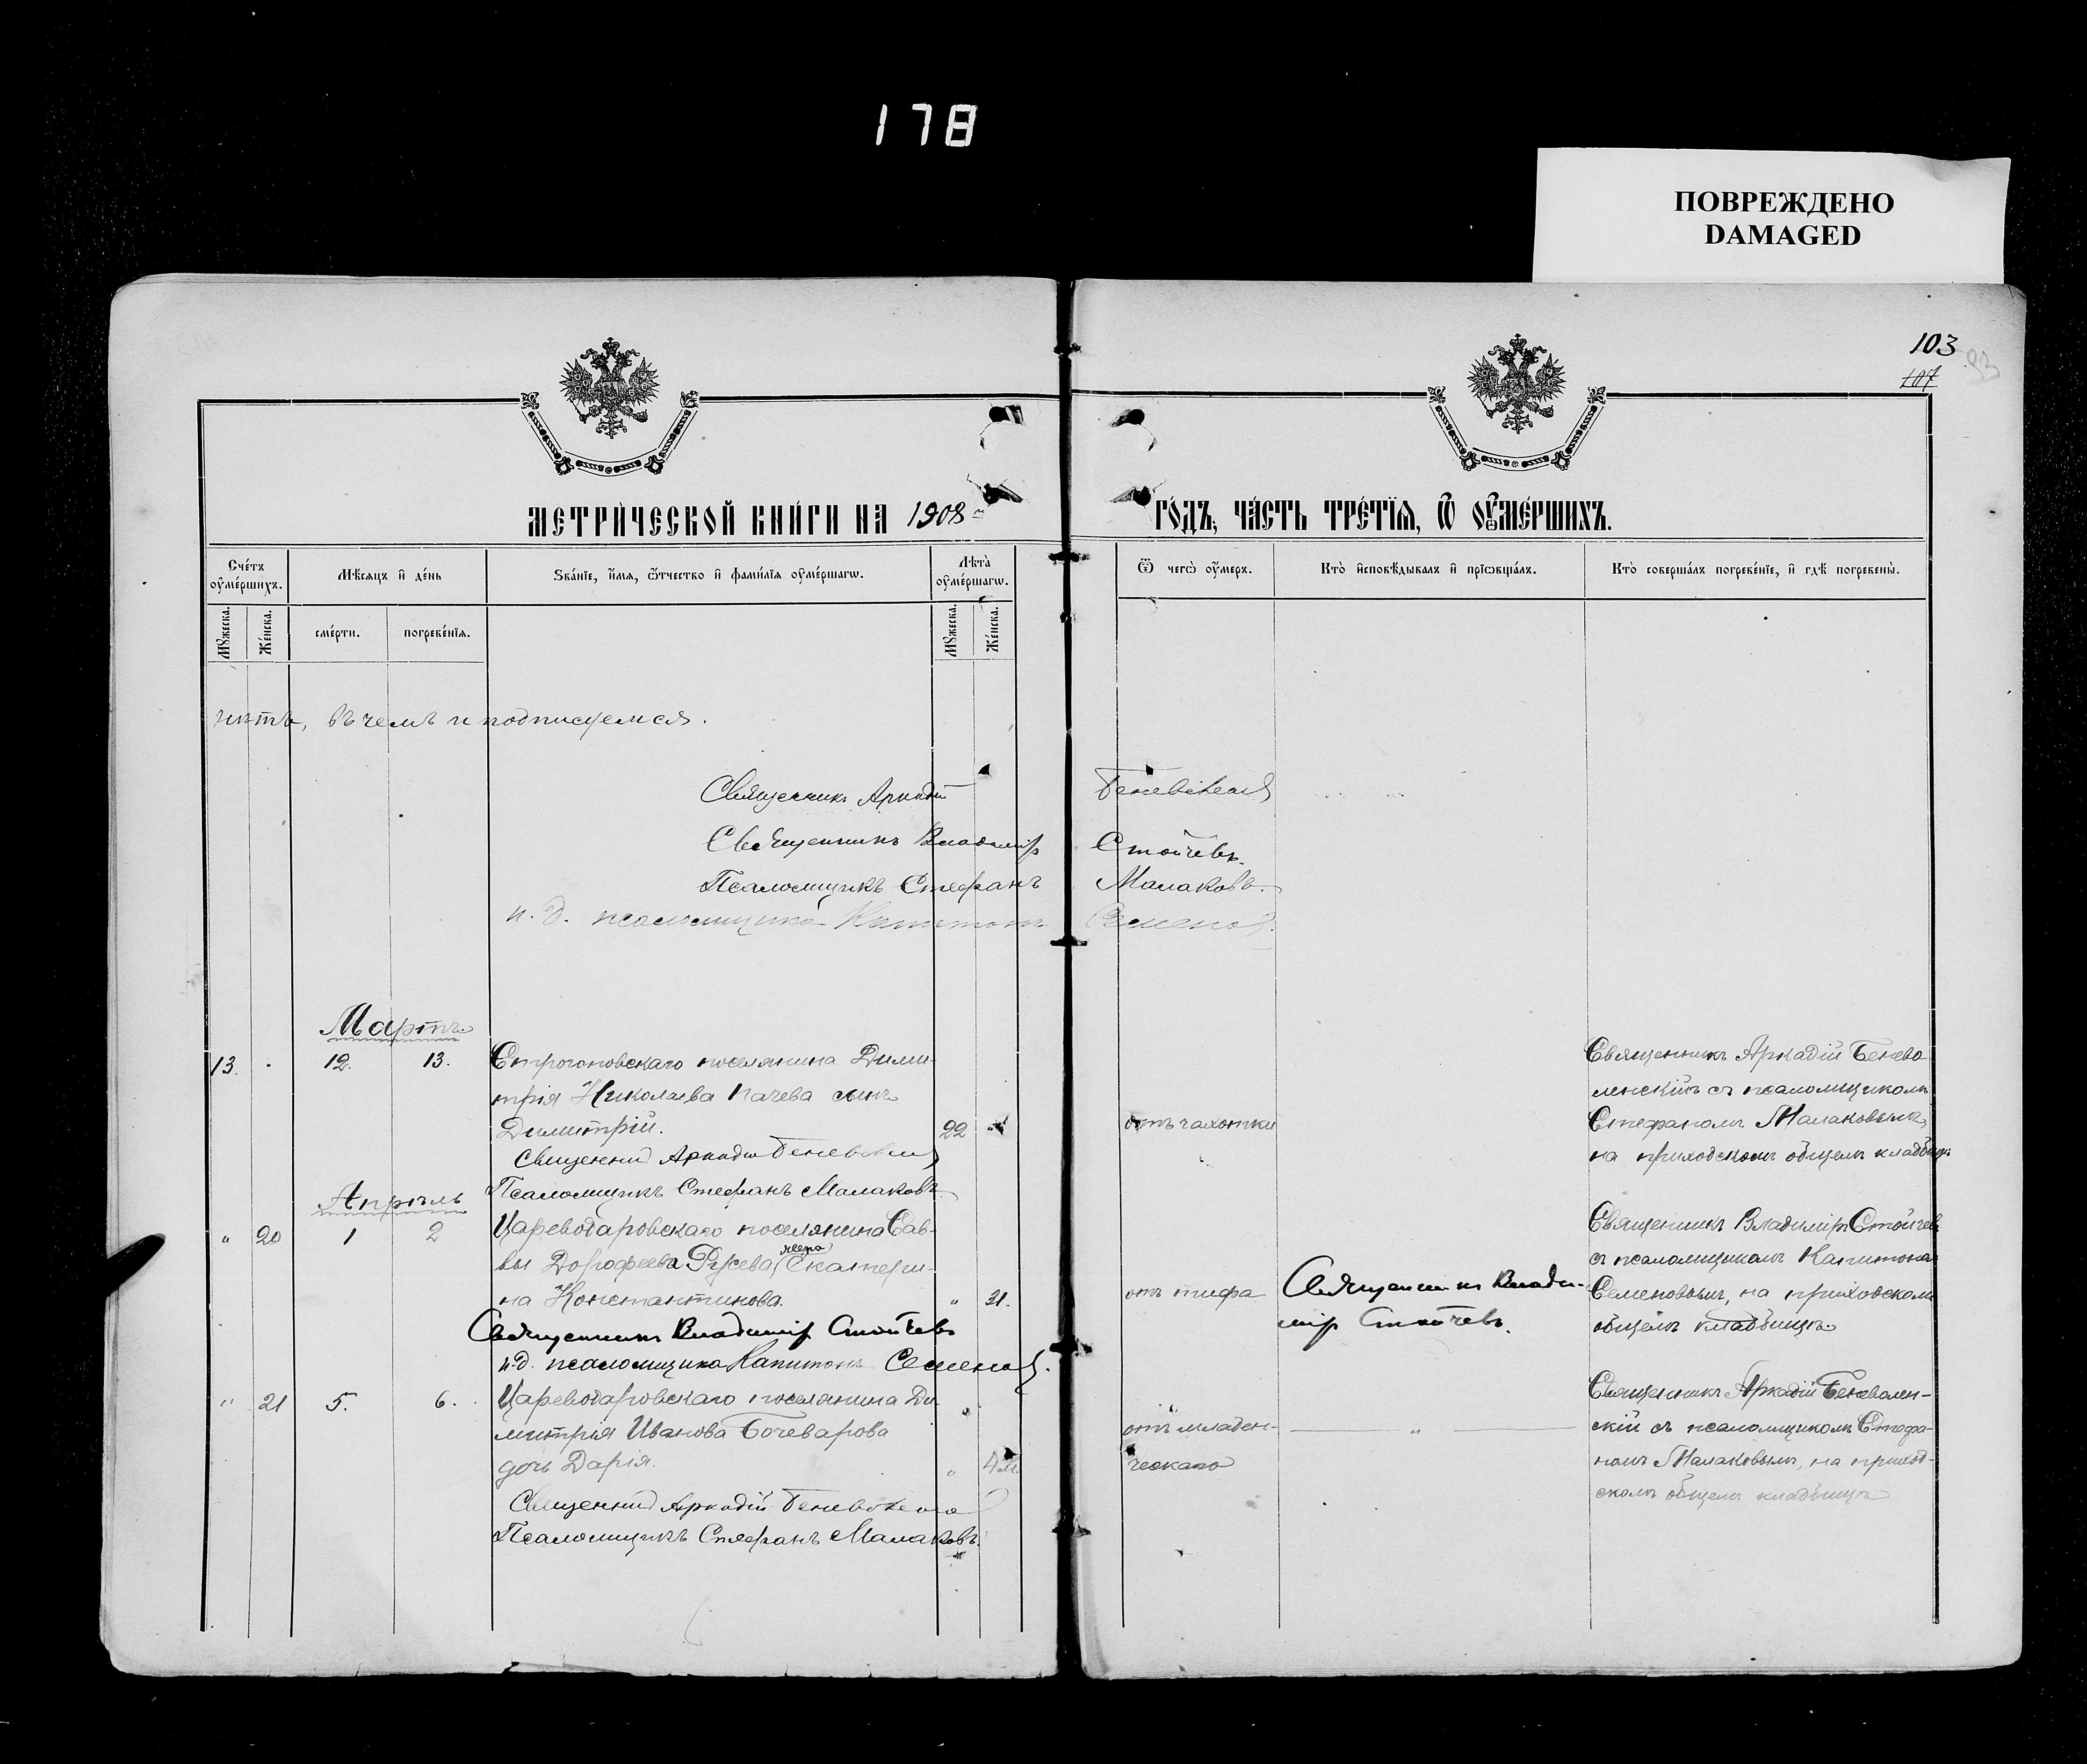 178
ПОВРЕЖДЕНО
DAMAGED
103
107
93
МЕТРИ́ЧЕСКОЙ КНИ́ГИ НА 1908 ГО́ДЪ, ЧА́СТЬ ТРЕ́ТЇѦ, Ѽ ОУ҆МЕ́РШИХЪ.
Сче́тъ оу҆ме́ршихъ.
Мѣ́сяцъ и҆ де́нь
Зва́нїе, и҆́мя, ѻ҆́тчество и҆ фами́лїя оу҆ме́ршагѡ.
Лѣ́та оу҆ме́ршагѡ.
Ѿ чегѡ̀ оу҆́меръ.
Кто̀ и҆сповѣ́дывалъ и҆ прїѡбща́лъ.
Кто̀ соверша́лъ погребе́нїе, и҆ гдѣ̀ погребены̀.
Мꙋ́жеска.
Же́нска.
сме́рти.
погребе́нїя.
Мꙋ́жеска.
Же́нска.
нитъ, въ чемъ и подписуемся.
Священникъ Аркадій Беневоленскій
Священникъ Владиміръ Стойчевъ.
Псаломщикъ Стефанъ Малаковъ.
и. д. псаломщика Капитонъ Семеновъ.
Мартъ
13. 12. 13. Строгоновскаго поселянина Дими-
трія Николаева Начева сынъ
Димитрій. 22 отъ чахотки
Священникъ Аркадій Беневоленскій
Псаломщикъ Стефанъ Малаковъ
Священникъ Аркадій Бенево-
ленскій съ псаломщикомъ
Стефаномъ Малаковымъ,
на приходскомъ общемъ кладбищѣ
Апрѣль
" 20 1 2 Цареводаровскаго поселянина Сав-
вы Дорофеева Русева жена Екатери-
на Константинова. " 31. отъ тифа
Священникъ Владиміръ Стойчевъ
и.д. псаломщика Капитонъ Семеновъ.
Священникъ Влади-
міръ Стойчевъ.
Священникъ Владиміръ Стойчевъ
съ псаломщикомъ Капитономъ
Семеновымъ, на приходскомъ
общемъ кладбищѣ.
" 21 5. 6. Цареводаровскаго поселянина Ди-
митрія Иванова Бочеварова
дочь Дарія. " 4 м.
отъ младен-
ческаго
"
Священникъ Аркадій Беневоленскій
Псаломщикъ Стефанъ Малаковъ.
Священникъ Аркадій Беневолен-
скій съ псаломщикомъ Стефа-
номъ Малаковымъ, на приход-
скомъ общемъ кладбищѣ